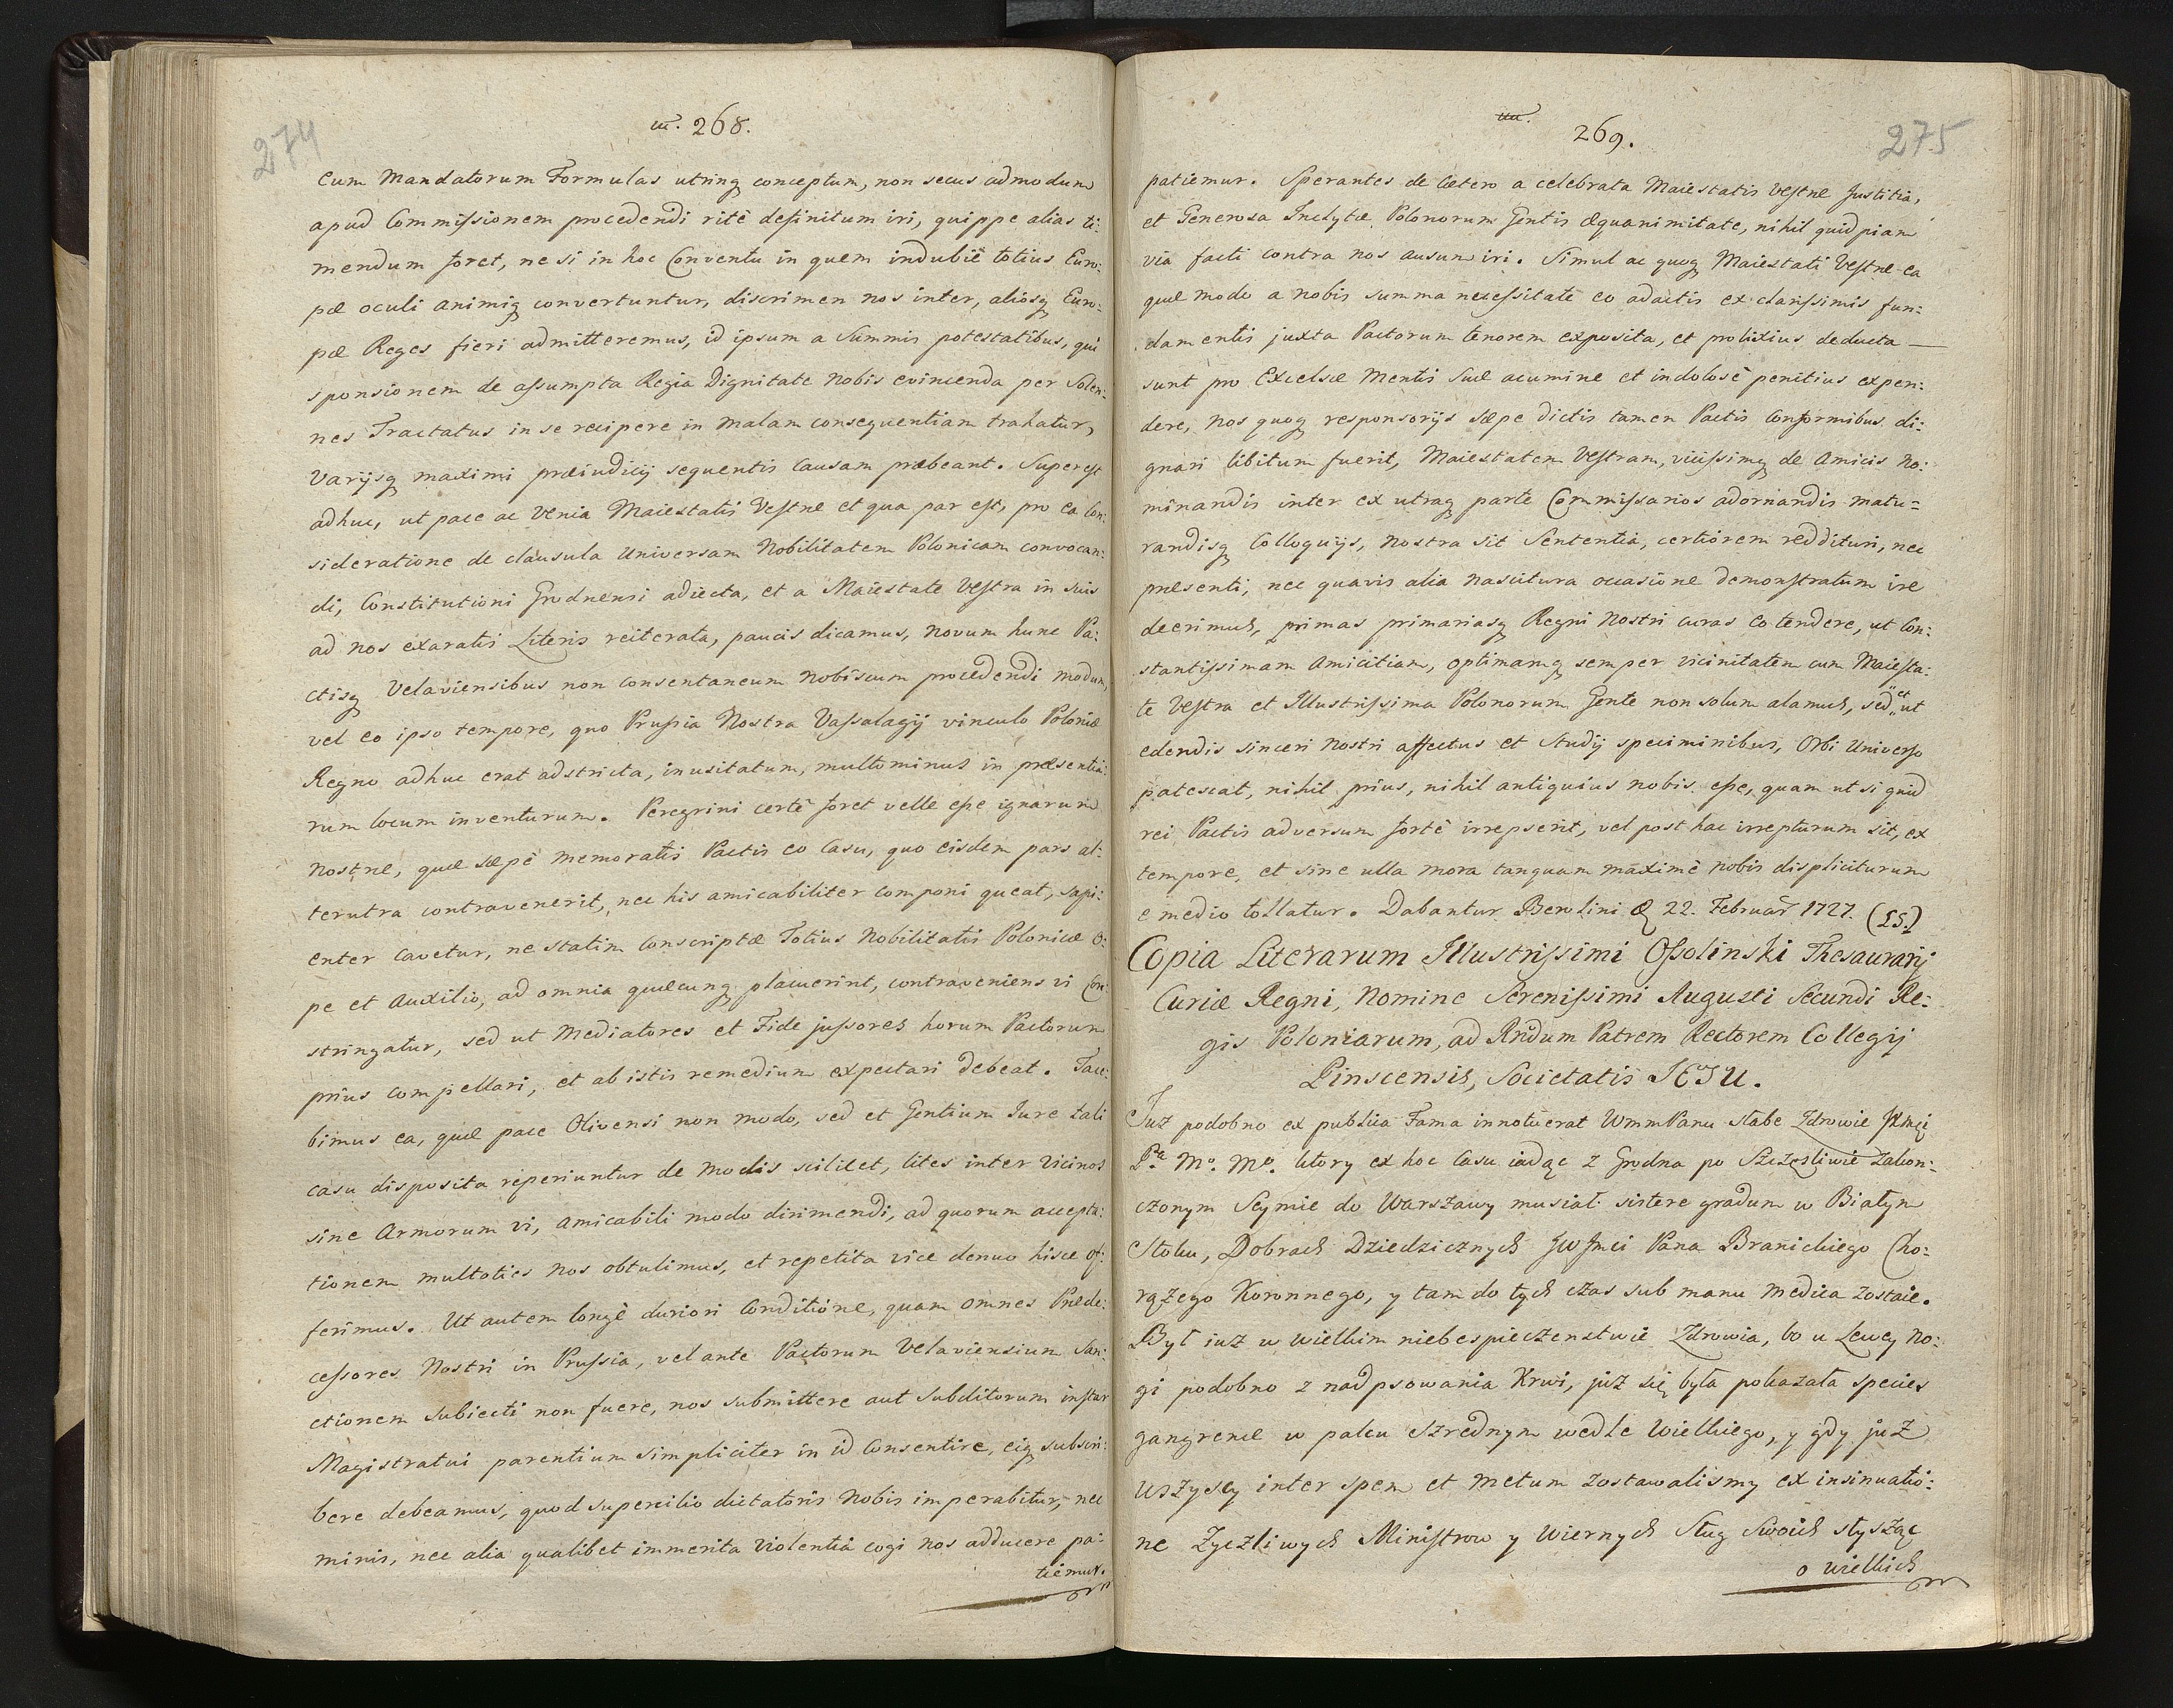 274
268.
Cum Mandatorum Formulas utrinq; conceptum, non secus admodum
apud Commissionem procedendi ritè definitum iri, quippe alias ti:
mendum foret, ne si in hoc Conventu in quem indubiè totius Euro:
pæ oculi animiq; convertuntur, discrimen nos inter, aliosq; Euro:
pæ Reges fieri admitteremus, id ipsum a Summis potestatibus, qui
sponsionem de assumpta Regia Dignitate Nobis evincenda per Solen:
nes Tractatus in se recipere in malam consequentiam trahatur,
varijsq; maximi præiudicij sequentis Causam præbeant. Superest
adhuc, ut pace ac venia Maiestatis Vestræ et qua par est, pro ea Con:
sideratione de clausula Universam Nobilitatem Polonicam convocan:
di, Constitutioni Grodnensi adiecta, et a Maiestate Vestra in suis
ad nos exaratis Literis reiterata, paucis dicamus, novum hunc Pa:
ctisq; Velaviensibus non consentaneum nobiscum procedendi modum,
vel eo ipso tempore, quo Prussia Nostra Vassalagij vinculo Poloniæ
Regno adhuc erat adstricta, inusitatum, multominus in præsentia:
rum locum inventurum. Peregrini certè foret velle esse ignarum
nostræ, quæ sæpè memoratis Pactis eo Casu, quo eisdem pars al:
terutra contravenerit, nec his amicabiliter componi queat, sapi:
enter cavetur, ne statim conscriptæ Totius Nobilitatis Polonicæ O:
pe et Auxilio, ad omnia quæcunq; placuerint, contraveniens vi Con:
stringatur, sed ut Mediatores et Fide jussores horum Pactorum
prius compellari, et ab istis remedium expectari debeat. Tace:
bimus ea, quæ pace Olivensi non modo, sed et Gentium Jure tali
casu disposita reperiuntur de modis scilicet, lites inter Vicinos
sine Armorum vi, amicabili modo dirimendi, ad quorum accepta:
tionem multoties nos obtulimus, et repetita vice denuo hisce of:
ferimus. Ut autem longè duriori Conditione, quam omnes Præde:
cessores Nostri in Prussia, vel ante Pactorum Velaviensium San:
ctionem subiecti non fuere, nos submittere aut Subditorum instar
Magistratui parentium simpliciter in id Consentire, eiq; subscri:
bere debeamus, quod supercilio dictatoris Nobis imperabitur, nec
minis, nec alia qualibet immerita violentia cogi nos adducere pa:
tiemur.
275
269.
patiemur. Sperantes de Cætero a celebrata Maiestatis Vestræ Justitia,
et Generosa Inclytæ Polonorum Gentis Æquanimitate, nihil quidpiam
via facti contra nos ausum iri. Simul ac quoq; Maiestati Vestræ ea
quæ modo a nobis summa necessitate eo adactis ex clarissimis fun:
damentis juxta Pactorum tenorem exposita, et prolixius deducta —
sunt pro Excelsæ Mentis Suæ acumine et indolosè penitius expen:
dere, Nos quoq; responsorijs sæpe dictis tamen Pactis Conformibus di:
gnari libitum fuerit, Maiestatem Vestram, vicissimq; de Amicis No:
minandis inter ex utraq; parte Commissarios adornandis matu=
randisq; Colloquijs, nostra sit Sententia, certiorem reddituri, nec
præsenti, nec quavis alia nascitura occasione demonstratum ire
deerimus, primas primariasq; Regni Nostri curas eo tendere, ut Con:
stantissimam Amicitiam, optimamq; semper vicinitatem cum Maiesta:
te Vestra et Illustrissima Polonorum Gente non solum alamus, sed et ut
edendis sinceri Nostri affectus et Studij speciminibus, Orbi Universo
patescat, nihil prius, nihil antiquius nobis esse, quam ut si quid
rei Pactis adversum fortè irrepserit, vel post hac irrepturum sit, ex
tempore, et sine ulla mora tanquam maximè nobis displiciturum
e medio tollatur. Dabantur Berolini 22. Februar 1727. (LS.)
Copia Literarum Illustrissimi Ossolinski Thesaurarij
Curiæ Regni, Nomine Serenissimi Augusti Secundi Re:
gis Poloniarum, ad Rndum Patrem Rectorem Collegij
Pinscensis, Societatis JESU.
Juz podobno ex publica Fama innotuerat WmmPanu słabe Zdrowie JKMci
Pa. Mo. Mo. ktory ex hoc Casu iadąc z Grodna po Szczęsliwie zakon:
czonym Seymie do Warszawy musiał sistere gradum w Białym
Stoku, Dobrach Dziedzicznych JWJmci Pana Branickiego Cho:
rązego Koronnego, y tam do tych czas sub manu Medica zostaie.
Był iuz w wielkim niebespieczenstwie Zdrowia, bo u Lewey No:
gi podobno z nadpsowania Krwi, już się była pokazała species
gangrenæ w palcu Szrednym wedle Wielkiego, y gdy już
wszyscy inter spem et metum zostawalismy ex insinuatio:
ne Zyczliwych Ministrow y Wiernych Sług Swoich słysząc
o wielkich